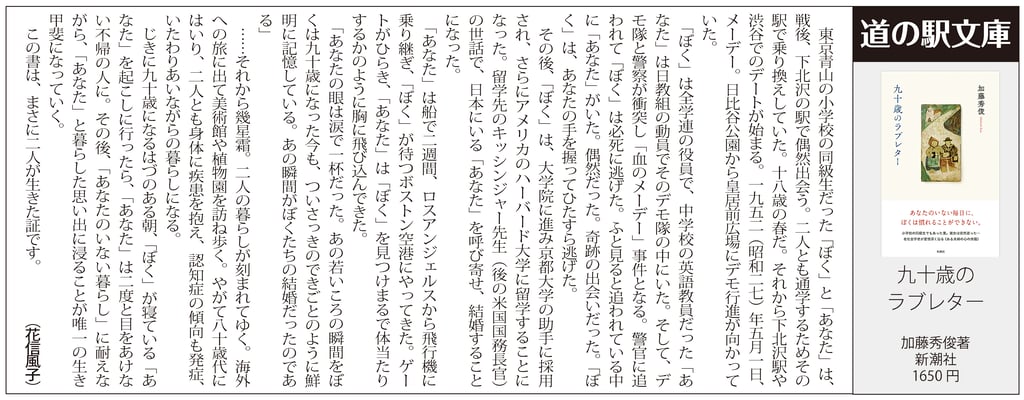 道の駅文庫
加藤秀俊
九十歳のラブレター
あなたのいない毎日に、
ぼくは慣れることができない。
新潮社
九十歳の
ラブレター
加藤秀俊著
新潮社
1650円
東京青山の小学校の同級生だった「ぼく」と「あなた」は、
戦後、下北沢の駅で偶然出会う。二人とも通学するためその
駅で乗り換えしていた。十八歳の春だ。それから下北沢駅や
渋谷でのデートが始まる。一九五二(昭和二七)年五月一日、
メーデー。日比谷公園から皇居前広場にデモ行進が向かって
いた。
「ぼく」は全学連の役員で、中学校の英語教員だった「あ
なた」は日教組の動員でそのデモ隊の中にいた。そして、デ
モ隊と警察が衝突し「血のメーデー」事件となる。警官に追
われて「ぼく」は必死に逃げた。ふと見ると追われている中
に「あなた」がいた。偶然だった。奇跡の出会いだった。「ぼ
く」は、あなたの手を握ってひたすら逃げた。
その後、「ぼく」は、大学院に進み京都大学の助手に採用
され、さらにアメリカのハーバード大学に留学することに
なった。留学先のキッシンジャー先生(後の米国国務長官)
の世話で、日本にいる「あなた」を呼び寄せ、結婚すること
になった。
「あなた」は船で二週間、ロスアンジェルスから飛行機に
乗り継ぎ、「ぼく」が待つボストン空港にやってきた。ゲー
トがひらき、「あなた」は「ぼく」を見つけまるで体当たり
するかのように胸に飛び込んできた。
「あなたの眼は涙で一杯だった。あの若いころの瞬間をぼ
くは九十歳になった今も、ついさっきのできごとのように鮮
明に記憶している。あの瞬間がぼくたちの結婚だったのであ
る」
……それから幾星霜。二人の暮らしが刻まれてゆく。海外
への旅に出て美術館や植物園を訪ね歩く。やがて八十歳代に
はいり、二人とも身体に疾患を抱え、認知症の傾向も発症、
いたわりあいながらの暮らしになる。
じきに九十歳になるはづのある朝、「ぼく」が寝ている「あ
なた」を起こしに行ったら、「あなた」は二度と目をあけな
い不帰の人に。その後、「あなたのいない暮らし」に耐えな
がら、「あなた」と暮らした思い出に浸ることが唯一の生き
甲斐になっていく。
この書は、まさに二人が生きた証です。
(花信風子)